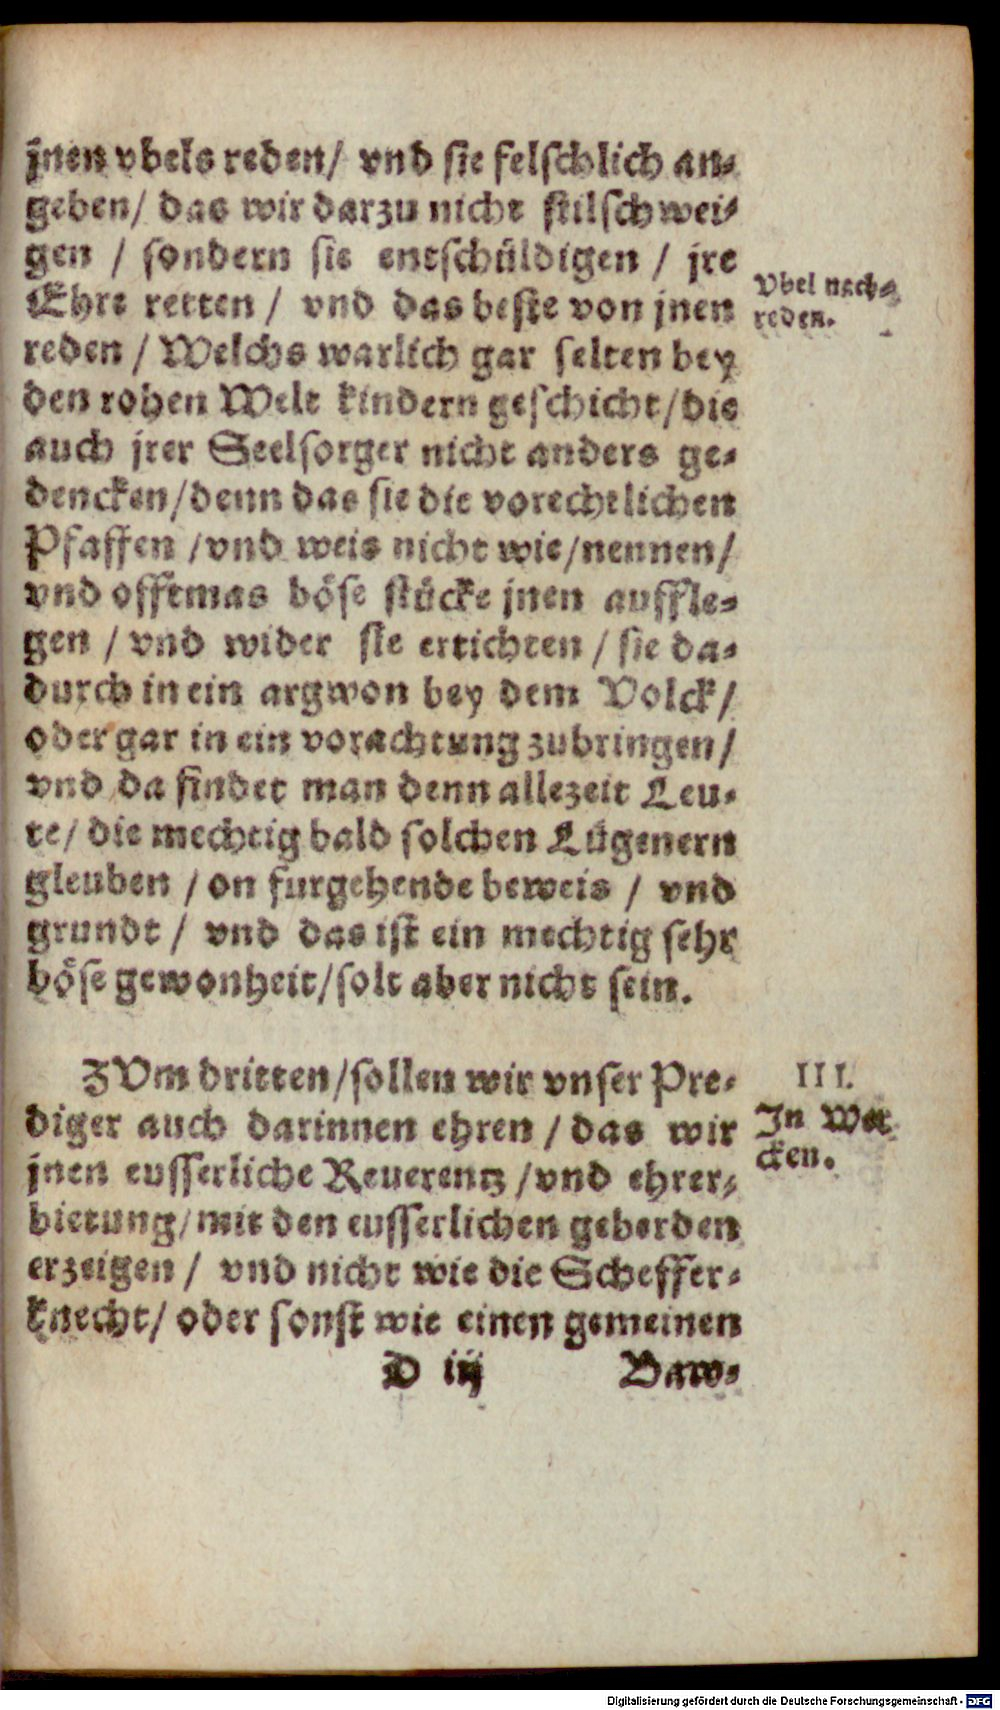 jnen vbels reden/ vnd sie felschlich an-
geben/ das wir darzu nicht stilschwei-
gen / sondern sie entschüldigen / jre
Ehre retten / vnd das beste von jnen
reden / Welchs warlich gar selten bey
den rohen Welt kindern geschicht/die
auch jrer Seelsorger nicht anders ge-
dencken/denn das sie die vorechtlichen
Pfaffen /vnd weis nicht wie/nennen/
vnd offtmas böse stücke jnen auffle-
gen / vnd wider sie ertichten / sie da-
durch in ein argwon bey dem Volck/
oder gar in ein vorachtung zubringen/
vnd da findet man denn allezeit Leu-
te/ die mechtig bald solchen Lügenern
gleuben / on furgehende beweis / vnd
grundt / vnd das ist ein mechtig sehr
böse gewonheit/solt aber nicht sein.
Vbel nach-
reden.
ZVm dritten/sollen wir vnser Pre-
diger auch darinnen ehren / das wir
jnen eusserliche Reuerentz /vnd ehrer-
bietung/mit den eusserlichen geberden
erzeigen / vnd nicht wie die Scheffer-
knecht/ oder sonst wie einen gemeinen
III.
In Wer
cken.
D iij Baw-
Digitalisierung gefördert durch die Deutsche Forschungsgemeinschaft - DFG